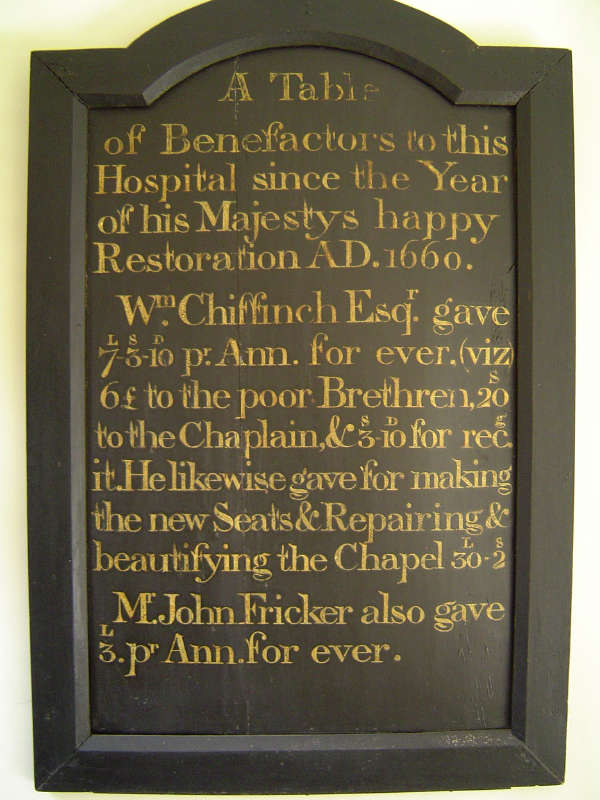 A Table
of Benefactors to this
Hospital since the Year
of his Majestys happy
Restoration AD. 1660.
Wm. Chiffinch Esqr. gave
L S D
7-3-10 pr. Ann. for ever. (viz)
6£ to the poor Brethren, 20S
to the Chaplain, & 3S-10D for recg.
it. He likewise gave for making
the new Seats & Repairing &
beautifying the Chapel 30L-2S
Mr. John Fricker also gave
L
3. pr Ann. for ever.